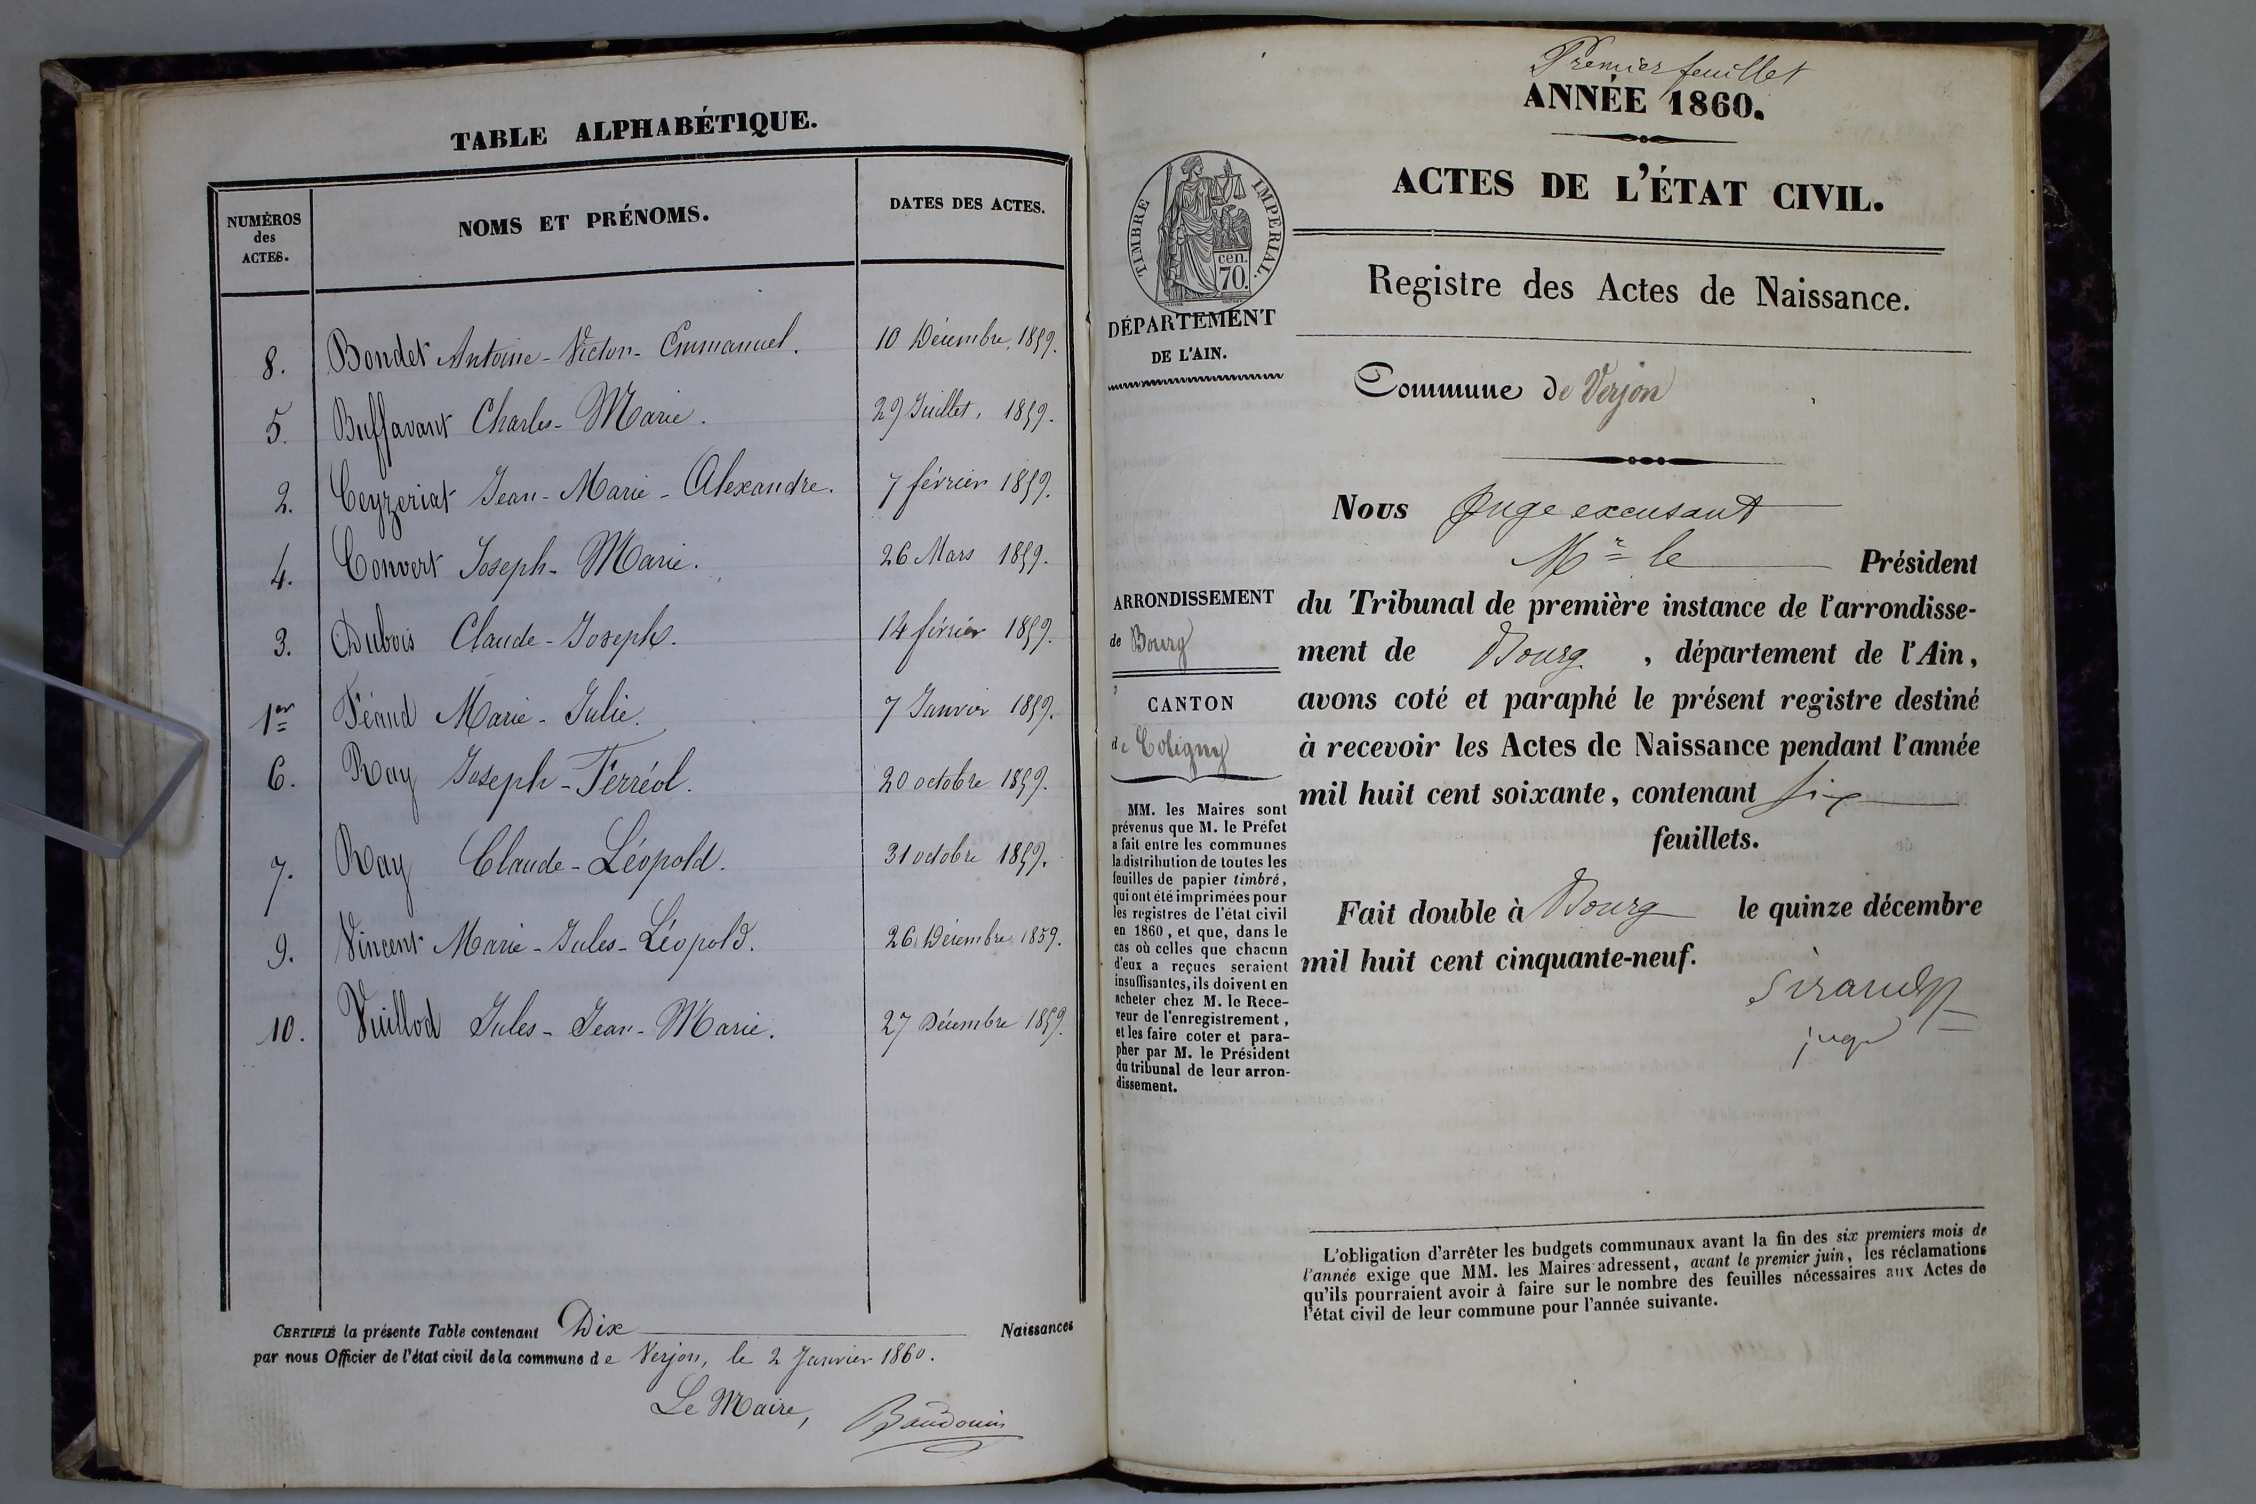 TABLE ALPHABÉTIQUE.
NUMÉROS
des
ACTES.
NOMS ET PRÉNOMS.
DATES DES ACTES.
8. Bondet Antoine-Victor-Emmanuel. 10 Décembre, 1859.
5. Buffavant Charles-Marie. 29 Juillet, 1859.
2. Ceyzeriat Jean-Marie-Alexandre. 7 février 1859.
4. Convert Joseph-Marie. 26 Mars 1859.
3. Dubois Claude-Joseph. 14 février 1859.
1er Féaud Marie-Julie. 7 Janvier 1859.
6. Ray Joseph-Ferréol. 20 octobre 1859.
7. Ray Claude-Léopold. 31 octobre 1859.
9. Vincent Marie-Jules-Léopold. 26 Décembre 1859.
10. Vuillod Jules-Jean-Marie. 27 Décembre 1859.
CERTIFIÉ la présente Table contenant Dix Naissances
par nous Officier de l'état civil de la commune de Verjon, le 2 Janvier 1860.
Le Maire, Baudouin
Premier feuillet
ANNÉE 1860.
ACTES DE L'ÉTAT CIVIL.
TIMBRE IMPÉRIAL.
cen.
70.
Registre des Actes de Naissance.
DÉPARTEMENT
DE L'AIN.
Commune de Verjon
Nous Juge excusant
Mr le Président
ARRONDISSEMENT
de Bourg
CANTON
de Coligny
du Tribunal de première instance de l'arrondisse-
ment de Bourg, département de l'Ain,
avons coté et paraphé le présent registre destiné
à recevoir les Actes de Naissance pendant l'année
mil huit cent soixante, contenant six
feuillets.
Fait double à Bourg le quinze décembre
mil huit cent cinquante-neuf.
juge
MM. les Maires sont
prévenus que M. le Préfet
a fait entre les communes
la distribution de toutes les
feuilles de papier timbré,
qui ont été imprimées pour
les registres de l'état civil
en 1860, et que, dans le
cas où celles que chacun
d'eux a reçues seraient
insuffisantes, ils doivent en
acheter chez M. le Rece-
veur de l'enregistrement,
et les faire coter et para-
pher par M. le Président
du tribunal de leur arron-
dissement.
L'obligation d'arrêter les budgets communaux avant la fin des six premiers mois de
l'année exige que MM. les Maires adressent, avant le premier juin, les réclamations
qu'ils pourraient avoir à faire sur le nombre des feuilles nécessaires aux Actes de
l'état civil de leur commune pour l'année suivante.